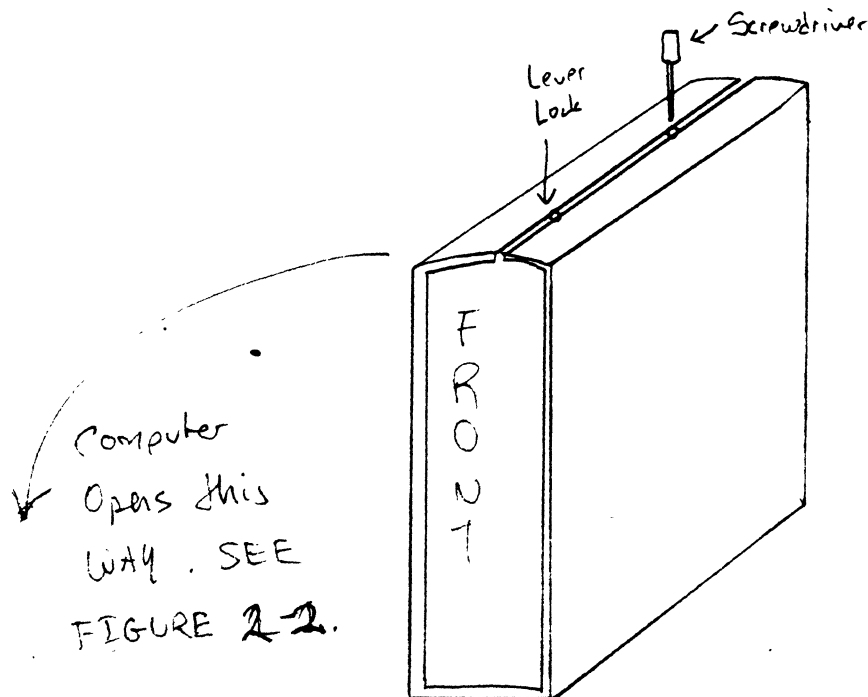 Screwdriver
Lever
Lock
FRONT
Computer
Opens this
WAY. SEE
FIGURE 2-2.